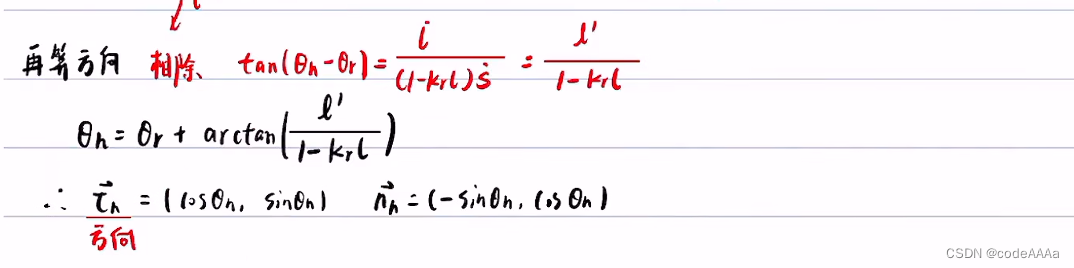 再算方向 相除、 tan(θh-θr) = l̇/((1-krl)ṡ) = l'/(1-krl)
θh = θr + arctan(l'/(1-krl))
∴ τ⃗h = (cosθh, sinθh) n⃗h = (-sinθh, cosθh)
方向
CSDN @codeAAAa